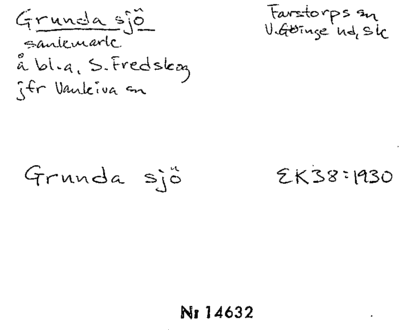 Grunda sjö
sankmark
å bl.a. S. Fredskog
jfr Vankiva sn
Farstorps sn
V. Göinge hd, Sk
Grunda sjö
EK38:1930
Nr 14632